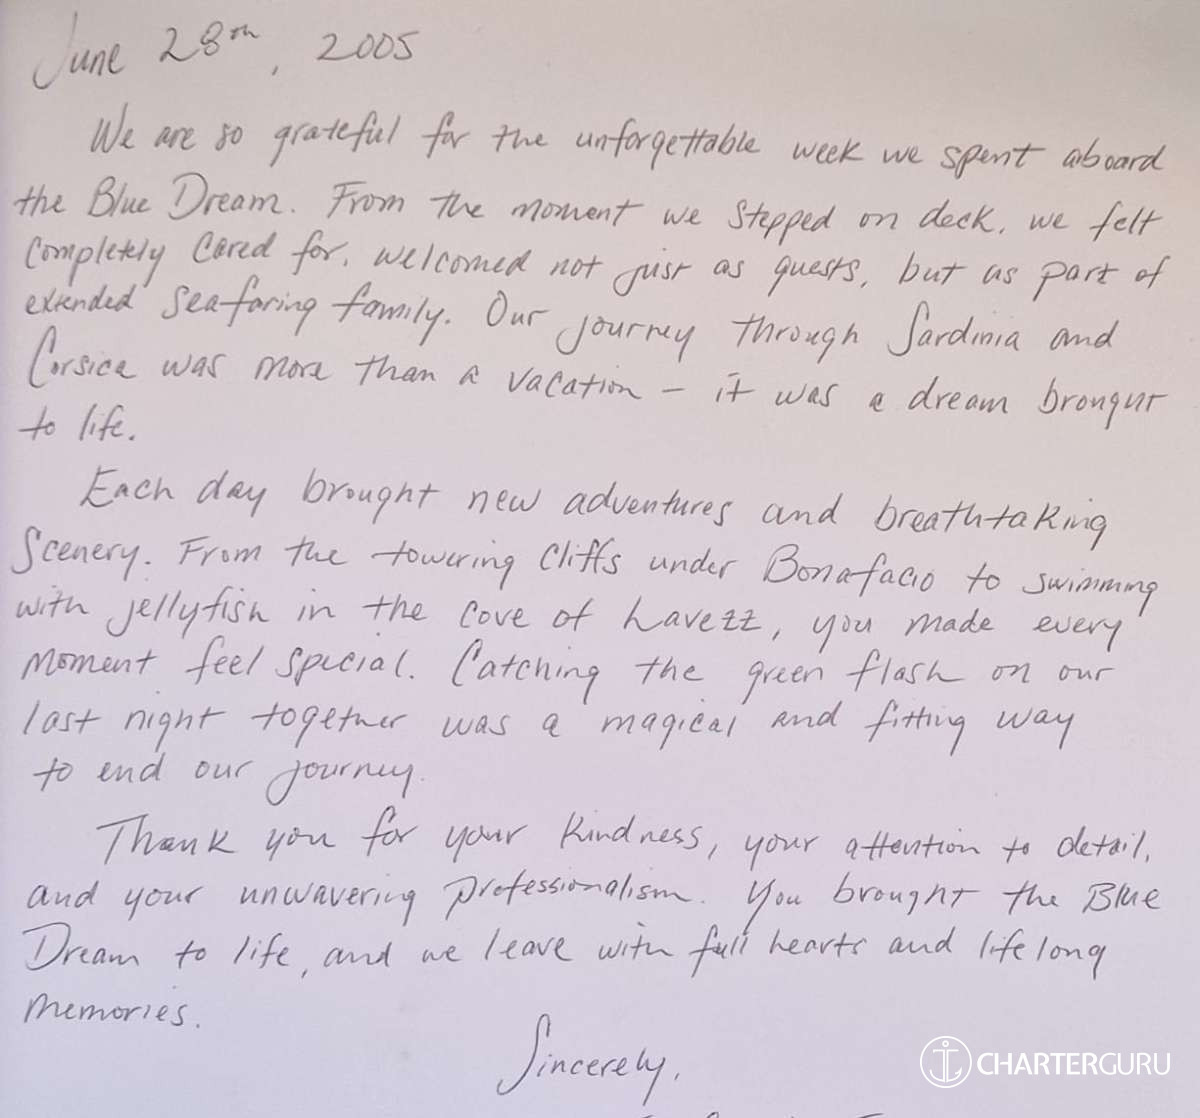 June 28th, 2005
We are so grateful for the unforgettable week we spent aboard
the Blue Dream. From the moment we stepped on deck, we felt
completely cared for, welcomed not just as guests, but as part of
extended seafaring family. Our journey through Sardinia and
Corsica was more than a vacation – it was a dream brougnt
to life.
Each day brought new adventures and breathtaking
Scenery. From the towering cliffs under Bonafacio to swimming
with jellyfish in the cove of Lavezz, you made every
moment feel special. Catching the green flash on our
last night together was a magical and fitting way
to end our journey.
Thank you for your kindness, your attention to detail,
and your unwavering professionalism. You brought the Blue
Dream to life, and we leave with full hearts and lifelong
memories.
Sincerely,
CHARTERGURU